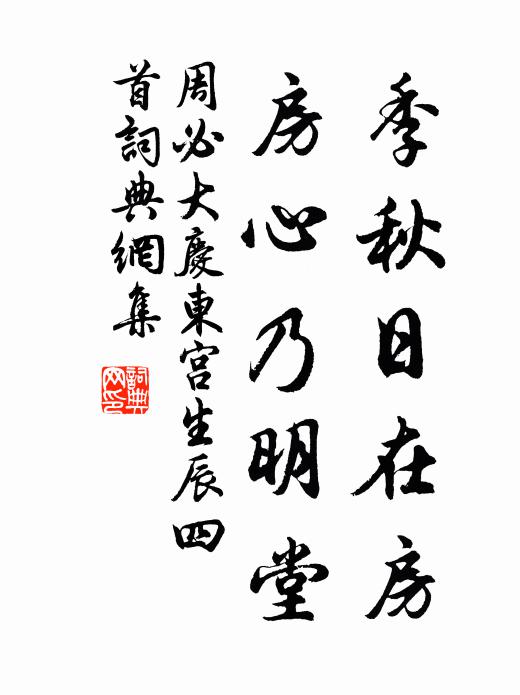 季秋日在房
房心乃明堂
周必大慶東宮生辰四
首詞典網集
詞典
网印